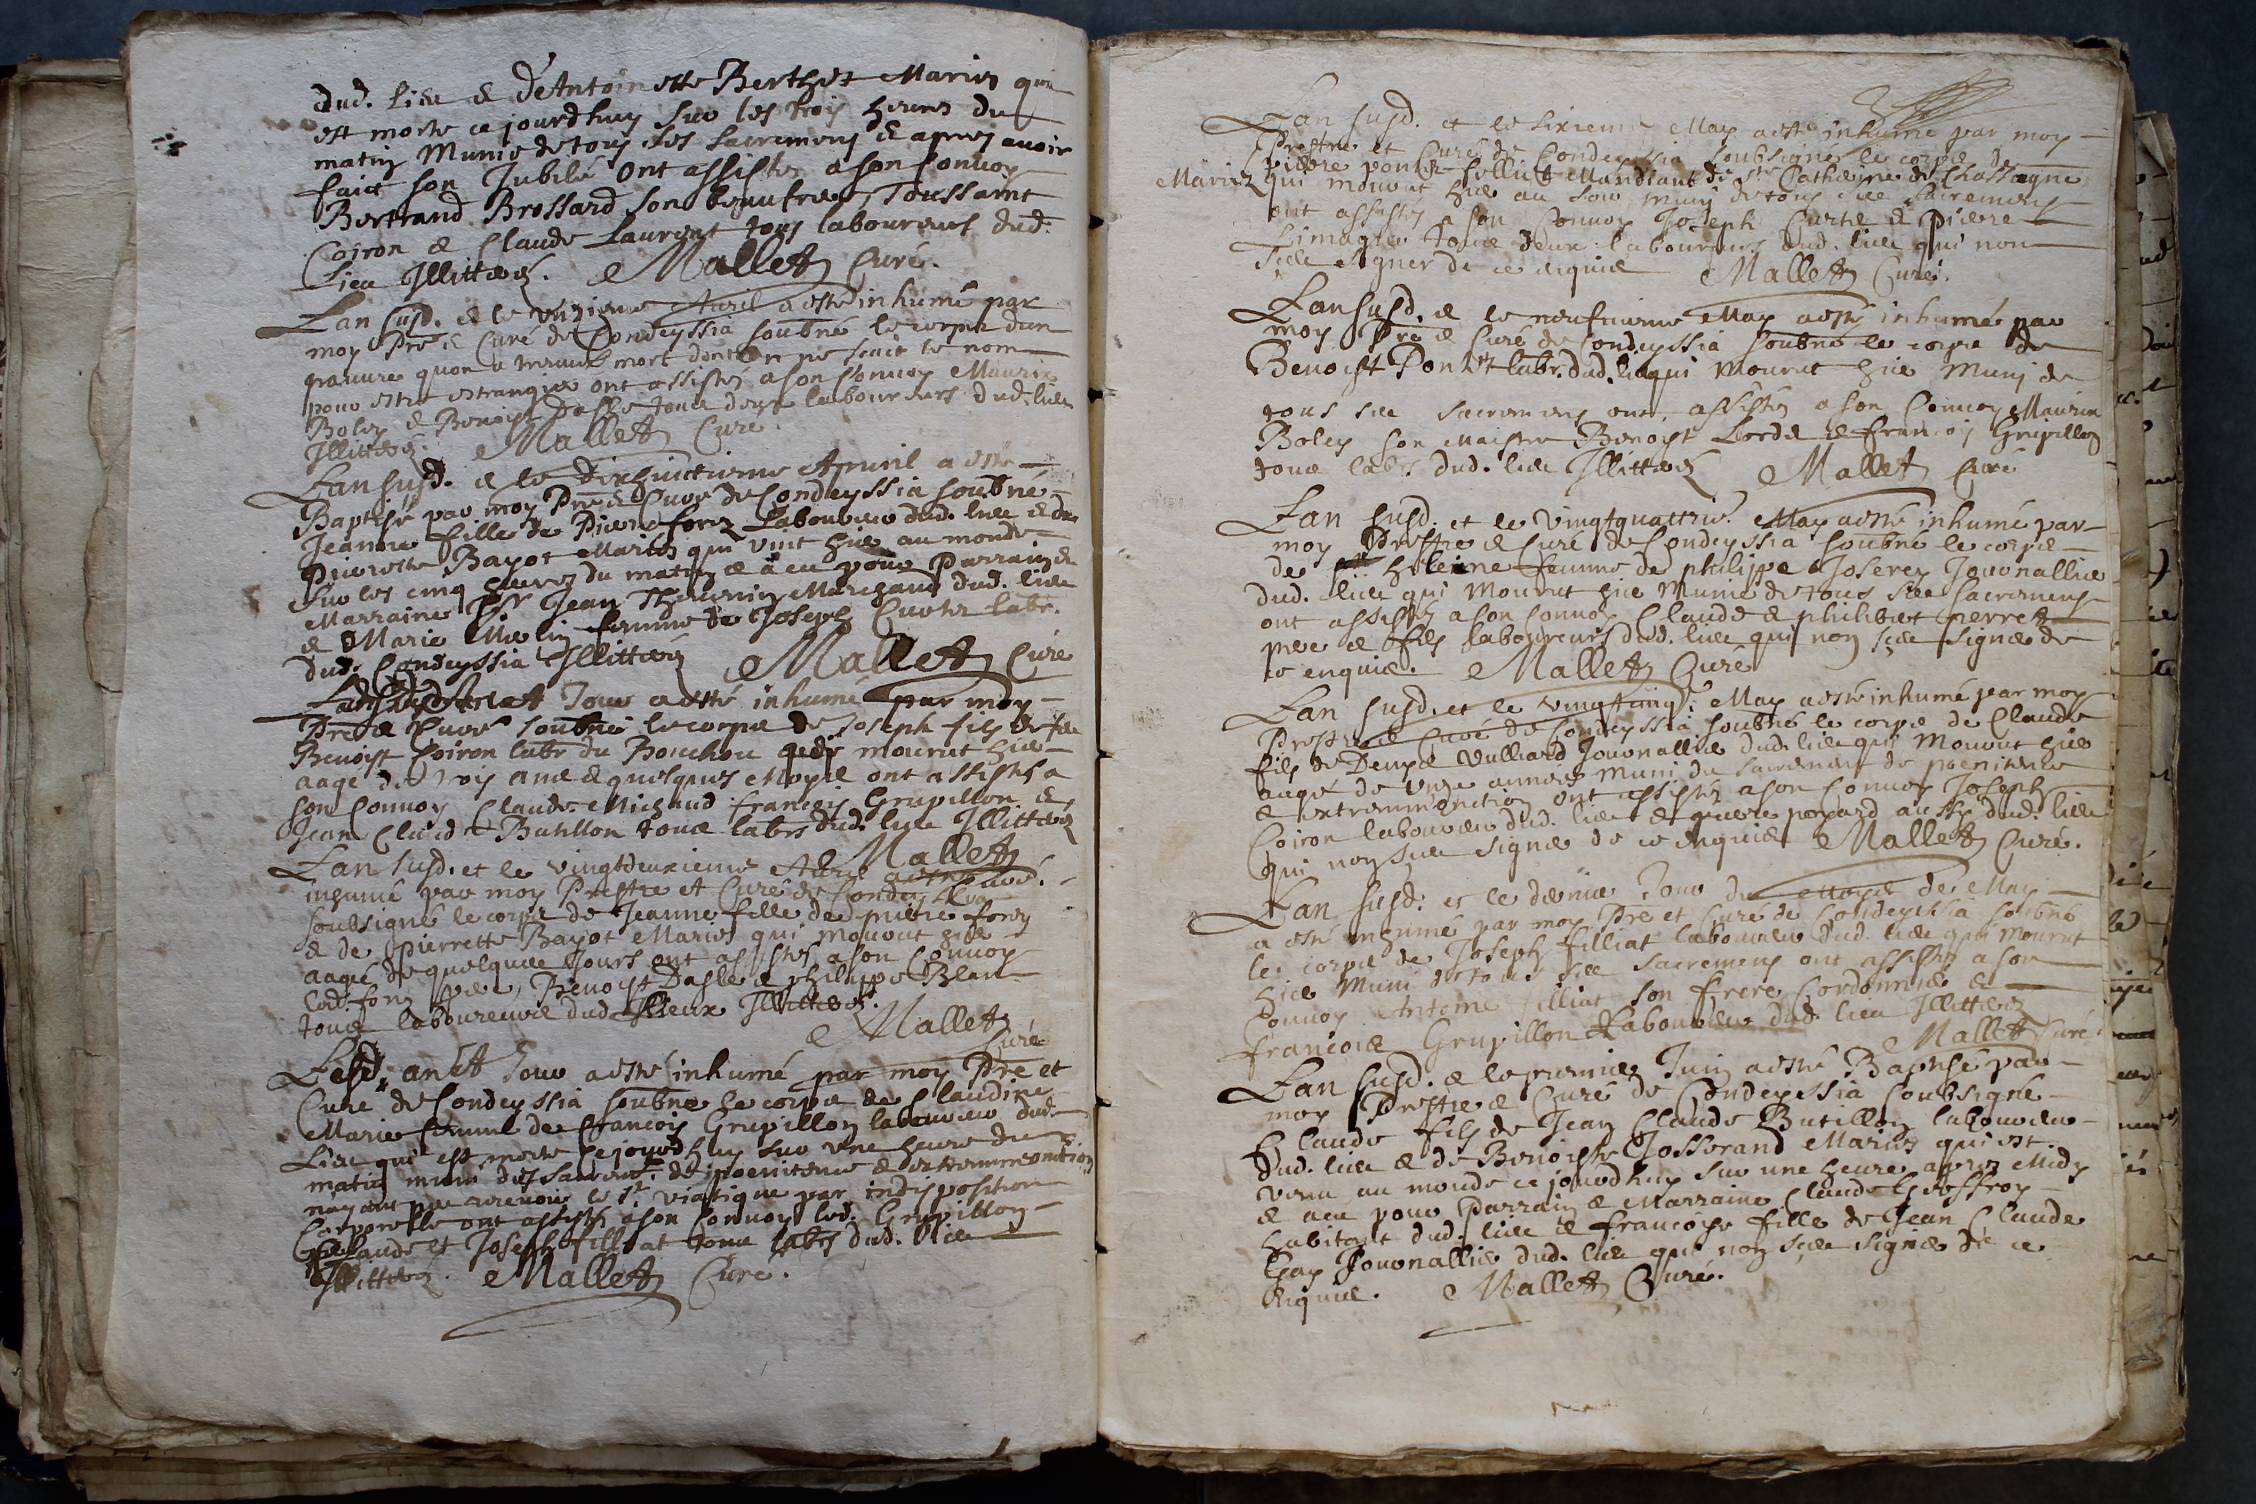 dud. lieu & d'Antoinette Berthet Mariés qui
est morte ce jourdhuy sur les trois heures du
matin Munie de tous ses sacremens & apres avoir
faict son Jubilé ont assistés a son Convoy
Bertrand Brossard son beaufrere, Toussaint
Coiron & Claude Laurent tous laboureurs dud.
lieu Illitterés. Mallet Curé.
Lan susd. & le unzieme Avril a esté inhumé par
moy Pre & Curé de Condeyssia soubné le corps dun
pauvre quon a trouvé mort dont on ne scait le nom
pour estre estranger ont assistés a son Convoy Maurix
Boley & Benoist Dasle tous deux laboureurs dud. lieu
Illitterés. Mallet Curé.
Lan susd. & le dixhuictieme Apvril a esté
Baptisé par moy Pre & Curé de Condeyssia soubné
Jeanne fille de Pierre forez Laboureur dud. lieu & de
Pierrette Bayot Mariés qui vint hier au monde
sur les cinq heures du matin & a eu pour Parrain &
Marraine Sr Jean Thevenin Marchand dud. lieu
& Marie Melin femme de Joseph Curte labr.
dud. Condeyssia Illitterés Mallet Curé
Lan susd & Jour a esté inhumé par moy
Pre & Curé soubné le corps de Joseph fils de feu
Benoist Coiron labr du Bouchou qui mourut hier
aagé de trois ans & quelques Moys ont assistés a
son Convoy Claude Michaud francois Grupillon &
Jean Claude Butillon tous labrs dud. lieu Illitterés
Mallet Curé.
Lan susd. et le vingtdeuxieme Avril a esté
inhumé par moy Prestre et Curé de Condeyssia
soubsigné le corps de Jeanne fille de pierre forez
& de pierrette Bayot Mariés qui mourut hier
aagée de quelques Jours ont assistés a son Convoy
led. forez pere, Benoist Dasle & philippe Blan
tous laboureurs dud. lieux Illitterés.
Mallet
Curé
Lesd. an & Jour a esté inhumé par moy Pre et
Curé de Condeyssia soubné le corps de Claudine
Marie femme de francois Grupillon laboureur dud.
lieu qui est morte cejourdhuy sur une heure du
matin muni des sacremt. de poenitence & dextremeonction
nayant peu recevoir le st. viatique par indisposition
Corporelle ont assistés a son Convoy led. Grupillon
Claude et Joseph filliat tous labrs dud. lieu
Illitterés. Mallet Curé.
Lan susd. et le sixieme May a esté inhumé par moy
Prestre et Curé de Condeyssia soubsigné le corps de
pierre pont & Mandiant de Ste Catherine de Chassagne
Mariez qui mourut hier au soir muni de tous ses sacremens
ont assistés a son Convoy Joseph Curte & Pierre
Limagne tous deux laboureurs dud. lieu qui non
sceu signer de ce enquis Mallet Curé.
Lan susd. & le neufvieme May a esté inhumé par
moy Pre & Curé de Condeyssia soubné le corps de
Benoist Ponet labr. dud. lieu qui Mourut hier Muni de
tous ses sacremens ont assistés a son Convoy Maurix
Boley son Maistre Benoist Lorde & francois Grupillon
tous labrs. dud. lieu Illitterés Mallet Curé
Lan susd. et le vingtquattrie. May a esté inhumé par
moy Prestre & Curé de Condeyssia soubné le corps
de helenne femme de philippe Joserey Journallier
dud. lieu qui Mourut hier Munie de tous ses sacremens
ont assistés a son Convoy Claude & philibert perret
pere & fils laboureurs dud. lieu qui non sceu signer de
ce enquis. Mallet Curé
Lan susd. et le vingtcinq. May a esté inhumé par moy
Prestre & Curé de Condeyssia soubné le corps de Claude
fils de Denys Vulliard Journallier dud. lieu qui Mourut hier
aagé de unze années muni du sacrement de poenitence
& extremeonction ont assistés a son Convoy Joseph
Coiron laboureur dud. lieu & pierre ponsard aussy dud. lieu
qui non sceu signer de ce enquis Mallet Curé.
Lan susd. et le dernier Jour du Moys de May
a esté inhumé par moy Pre et Curé de Condeyssia soubné
le corps de Joseph filliat laboureur dud. lieu qui Mourut
hier Muni de tous ses sacremens ont assistés a son
Convoy Antoine filliat son frere Cordonnier &
francois Grupillon Laboureur dud. lieu Illitterés
Mallet Curé.
Lan susd. & le premier Juin a esté Baptisé par
moy Prestre & Curé de Condeyssia soubsigné
Claude fils de Jean Claude Butillon laboureur
dud. lieu & de Benoiste Josserand Mariés qui est
venu au monde ce jourdhuy sur une heure apres Midy
& a eu pour Parrain & Marraine Claude Geoffroy
habitant dud. lieu & francoise fille de Jean Claude
Gay Journallier dud. lieu qui non sceu signer de ce
enquis. Mallet Curé.